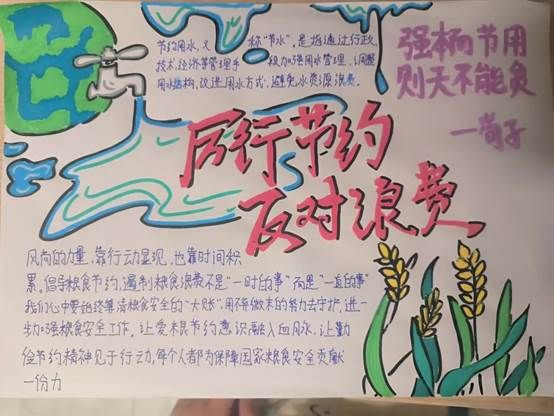 节约用水,又称“节水”,是指通过行政
技术,经济等管理手段加强用水管理,调整
用水结构,改进用水方式,避免水资源浪费.
强本而节用
则天不能贫
—荀子
厉行节约
反对浪费
风尚的力量,靠行动显现,也靠时间积
累,倡导粮食节约,遏制粮食浪费不是“一时的事”而是“一直的事”
我们心中要始终算清粮食安全的“大账”,用
做
的努力去守护,进一
步加强粮食安全工作,让爱粮节约意识融入血
,让勤
俭节约精神见于行动,每个人都为保障国家粮食安全贡献
一份力